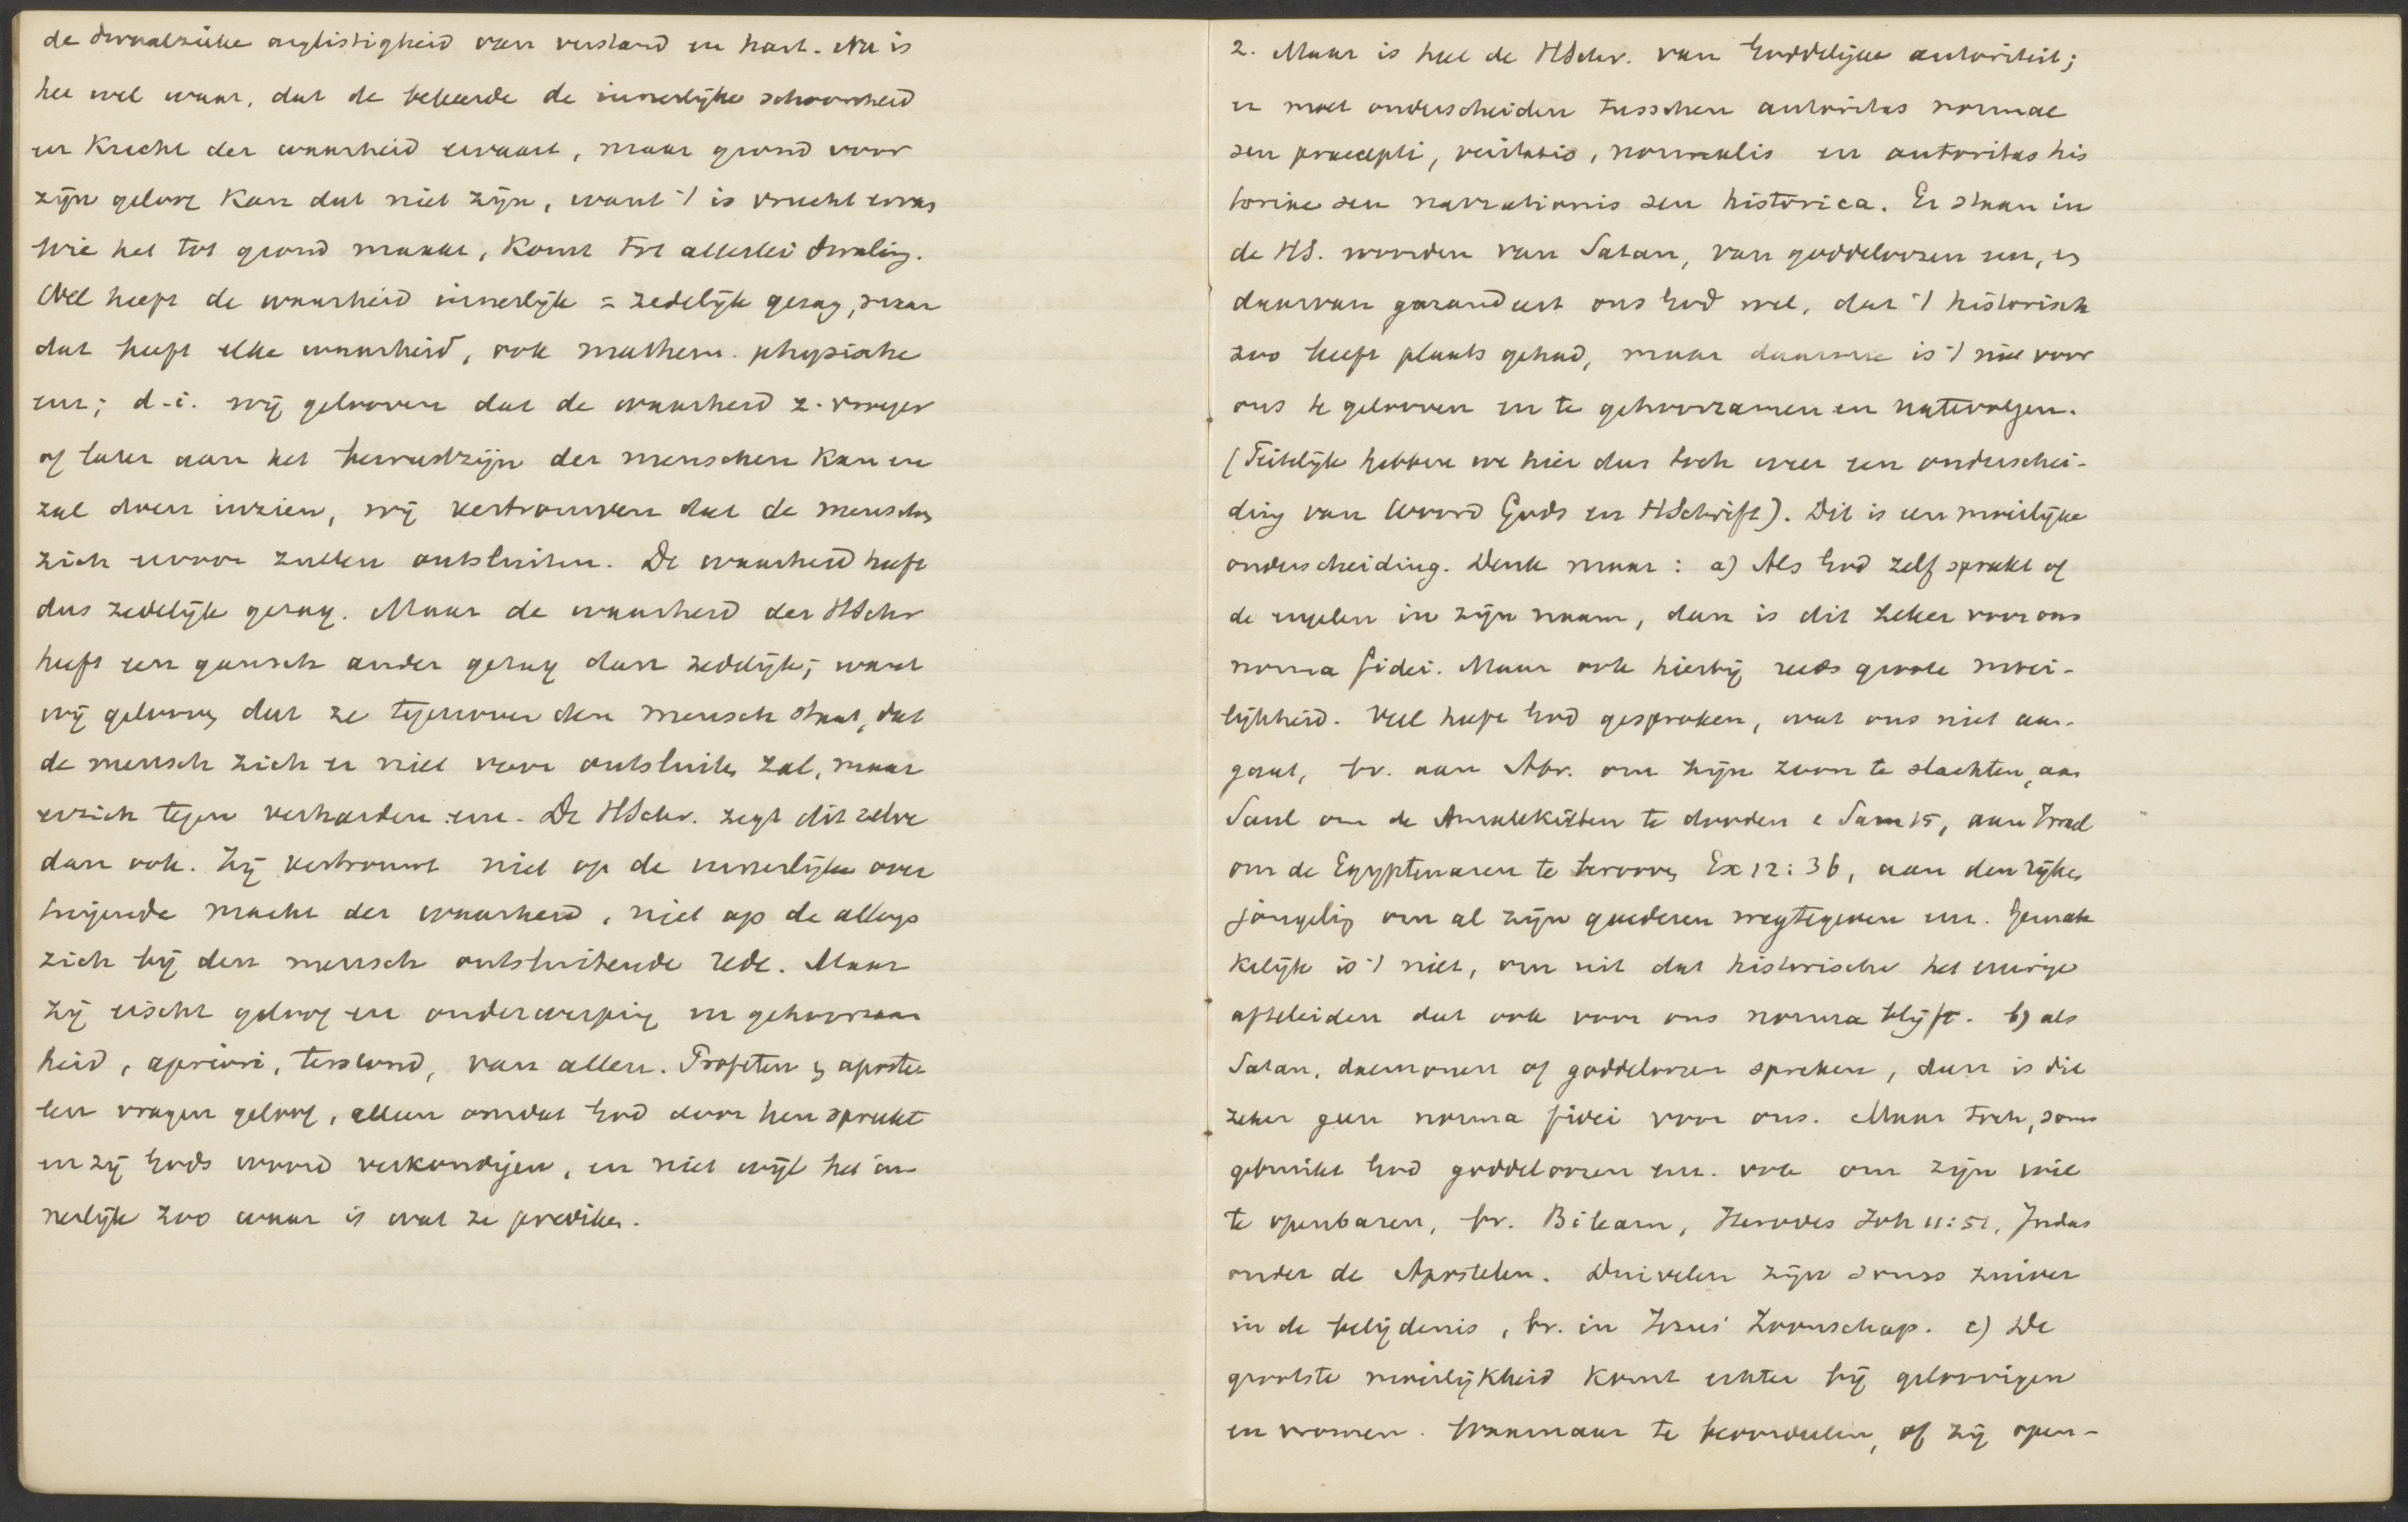 de dwaalzieke arglistigheid van verstand en hart. Nu is
het wel waar, dat de bekeerde de innerlijke schoonheid
en kracht der waarheid ervaart, maar grond voor
zijn geloof kan dat niet zijn, want 't is vrucht ervan
Wie het tot grond maakt, komt tot allerlei dwaling.
Wel heeft de waarheid innerlijk = zedelijk gezag, maar
dat heeft elke waarheid, ook mathem. physische
enz; d.i. wij gelooven dat de waarheid z. vroeger
of later aan het bewustzijn der menschen kan en
zal doen inzien, wij vertrouwen dat de menschen
zich ervoor zullen ontsluiten. De waarheid heeft
dus zedelijk gezag. Maar de waarheid der HSchr
heeft een gansch ander gezag dan zedelijk; want
wij gelooven dat ze tegenover den mensch staat, dat
de mensch zich er niet voor ontsluiten zal, maar
er zich tegen verharden enz. De HSchr. zegt dit zelve
dan ook. Zij vertrouwt niet op de innerlijke over
tuigende macht der waarheid, niet op de allengs
zich bij den mensch ontsluitende rede. Maar
zij eischt geloof en onderwerping en gehoorzaam
heid, apriori, terstond, van allen. Profeten en aposte
len vragen geloof, alleen omdat God door hen spreekt
en zij Gods woord verkondigen, en niet wijl het in-
nerlijk zoo waar is wat ze prediken.
2. Maar is heel de HSchr. van Goddelijke autoriteit;
er moet onderscheiden tusschen autoritas normae
seu praecepti, veritatis, normalis en autoritas his
toriae seu narrationis seu historica. Er staan in
de HS. woorden van Satan, van goddeloozen enz, en
daarvan garandeert ons God wel, dat 't historisch
zoo heeft plaats gehad, maar daarmee is 't niet voor
ons te gelooven en te gehoorzamen en natevolgen.
(Feitelijk hebben we hier dus toch weer een onderschei-
ding van Woord Gods en HSchrift). Dit is een moeilijke
onderscheiding. Denk maar: a) Als God zelf spreekt of
de engelen in zijn naam, dan is dit zeker voor ons
norma fidei. Maar ook hierbij reeds groote moei-
lijkheid. Veel heeft God gesproken, wat ons niet aan-
gaat, bv. aan Abr. om zijn zoon te slachten, aan
Saul om de Amalekieten te dooden 1 Sam 15, aan Israel
om de Egyptenaren te berooven Ex 12:36, aan den rijken
jongeling om al zijn goederen wegtegeven enz. Gemak
kelijk is 't niet, om uit dat historische het eeuwige
afteleiden dat ook voor ons norma blijft. b) als
Satan, daemonen of goddeloozen spreken, dan is die
zeker geen norma fidei voor ons. Maar toch, soms
gebruikt God goddeloozen enz. ook om zijn wil
te openbaren, bv. Bileam, Herodes Joh 11:51, Judas
onder de Apostelen. Duivelen zijn soms zuiver
in de belijdenis, bv. in Jezus' Zoonschap. c) De
grootste moeilijkheid komt echter bij geloovigen
en vromen. Waarnaar te beoordeelen, of zij open-